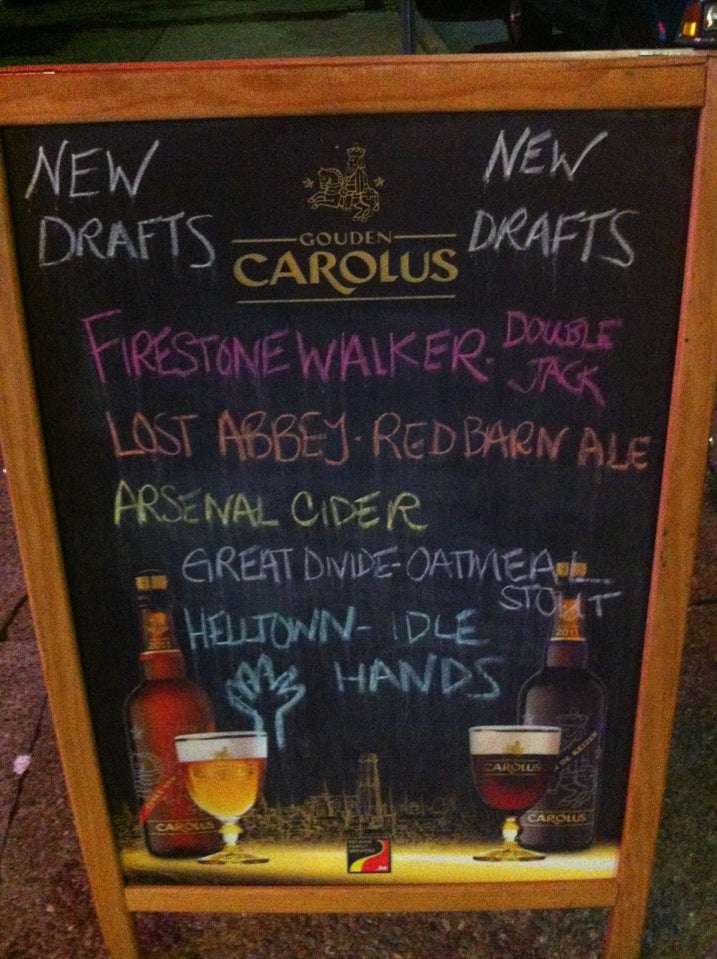 NEW DRAFTS
NEW DRAFTS
GOUDEN
CAROLUS
FIRESTONE WALKER. DOUBLE JACK
LOST ABBEY. RED BARN ALE
ARSENAL CIDER
GREAT DIVIDE-OATMEAL STOUT
HELLTOWN-IDLE HANDS
CAROLUS
CAROLUS
CAROLUS